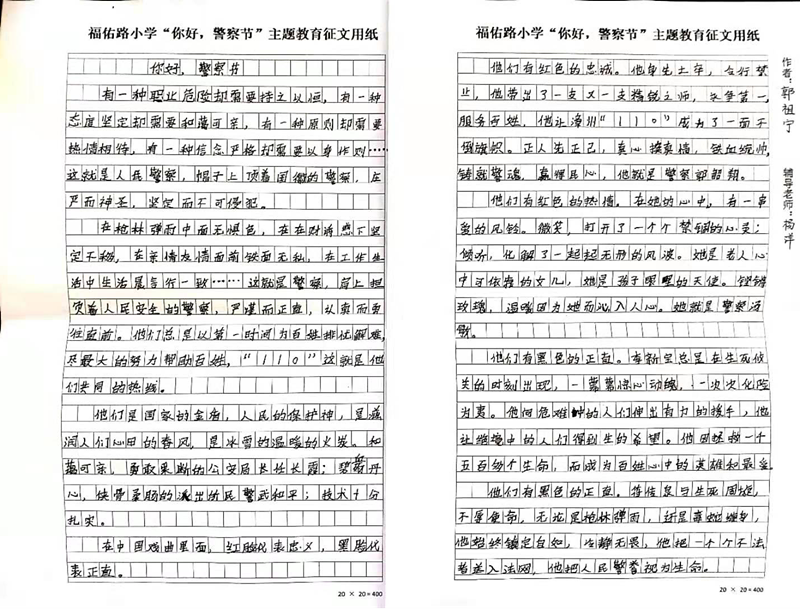 福佑路小学“你好，警察节”主题教育征文用纸
你好，警察节
有一种职业危险却需要持之以恒，有一种
态度坚定却需要和蔼可亲，有一种原则却需要
热情相待，有一种信念严格却需要以身作则……
这就是人民警察，帽子上顶着国徽的警察，庄
严而神圣，坚定而不可侵犯。
在枪林弹雨中面无惧色，在在对诱惑下坚
定不移，在亲情友情面前铁面无私，在工作生
活中生活履言行一致……这就是警察，肩上担
负着人民安全的警察，严谨而正直，认真而勇
往直前。他们总是以第一时间为百姓排忧解难，
尽最大的努力帮助百姓，“110”这就是他
们共同的热线。
他们是国家的金盾，人民的保护神，是滋
润人们心田的春风，是冰雪的温暖的火炭。和
蔼可亲、勇敢果断的公安局长任长霞；碧血丹
心，侠骨柔肠的派出的民警武和平；技术十分
扎实。
在中国戏曲里面，红脸代表忠义，黑脸代
表正直。
20 × 20 = 400
福佑路小学“你好，警察节”主题教育征文用纸
他们有红色的忠诚。他半生士卒，令行禁
止，他带出了一支又一支精锐之师，永争第一，
服务百姓，他让漳州“110”成为了一面不
倒旗帜。正人先正己，真心换真情，铁血统帅，
铸就警魂，赢得民心，他就是警察郭韶翔。
他们有红色的热情。在她的心中，有一串
爱的风铃。微笑，打开了一个个禁锢的心灵；
倾听，化解了一起起无形的风波。她是老人心
中可依靠的女儿，她是孩子眼里的天使。铿锵
玫瑰，温暖因为她而沁入人心。她就是警察
他们有黑色的正直。 总是在生死攸
关的时刻出现，一幕幕惊心动魄，一次次化险
为夷。他向危难中的人们伸出有力的援手，他
让绝境中的人们得到生的希望。他因拯救一个
五百多个生命，而成为百姓心中的英雄和最爱
他们有黑色的正直。 是与生死周旋，
不辱使命，无论是枪林弹雨，还是毒蛇 ，
他始终镇定自如，冷静无畏，他把一个个不法
者送入法网，他把人民警誉视为生命。
20 × 20 = 400
作者：郭祖宁
辅导老师：杨洋